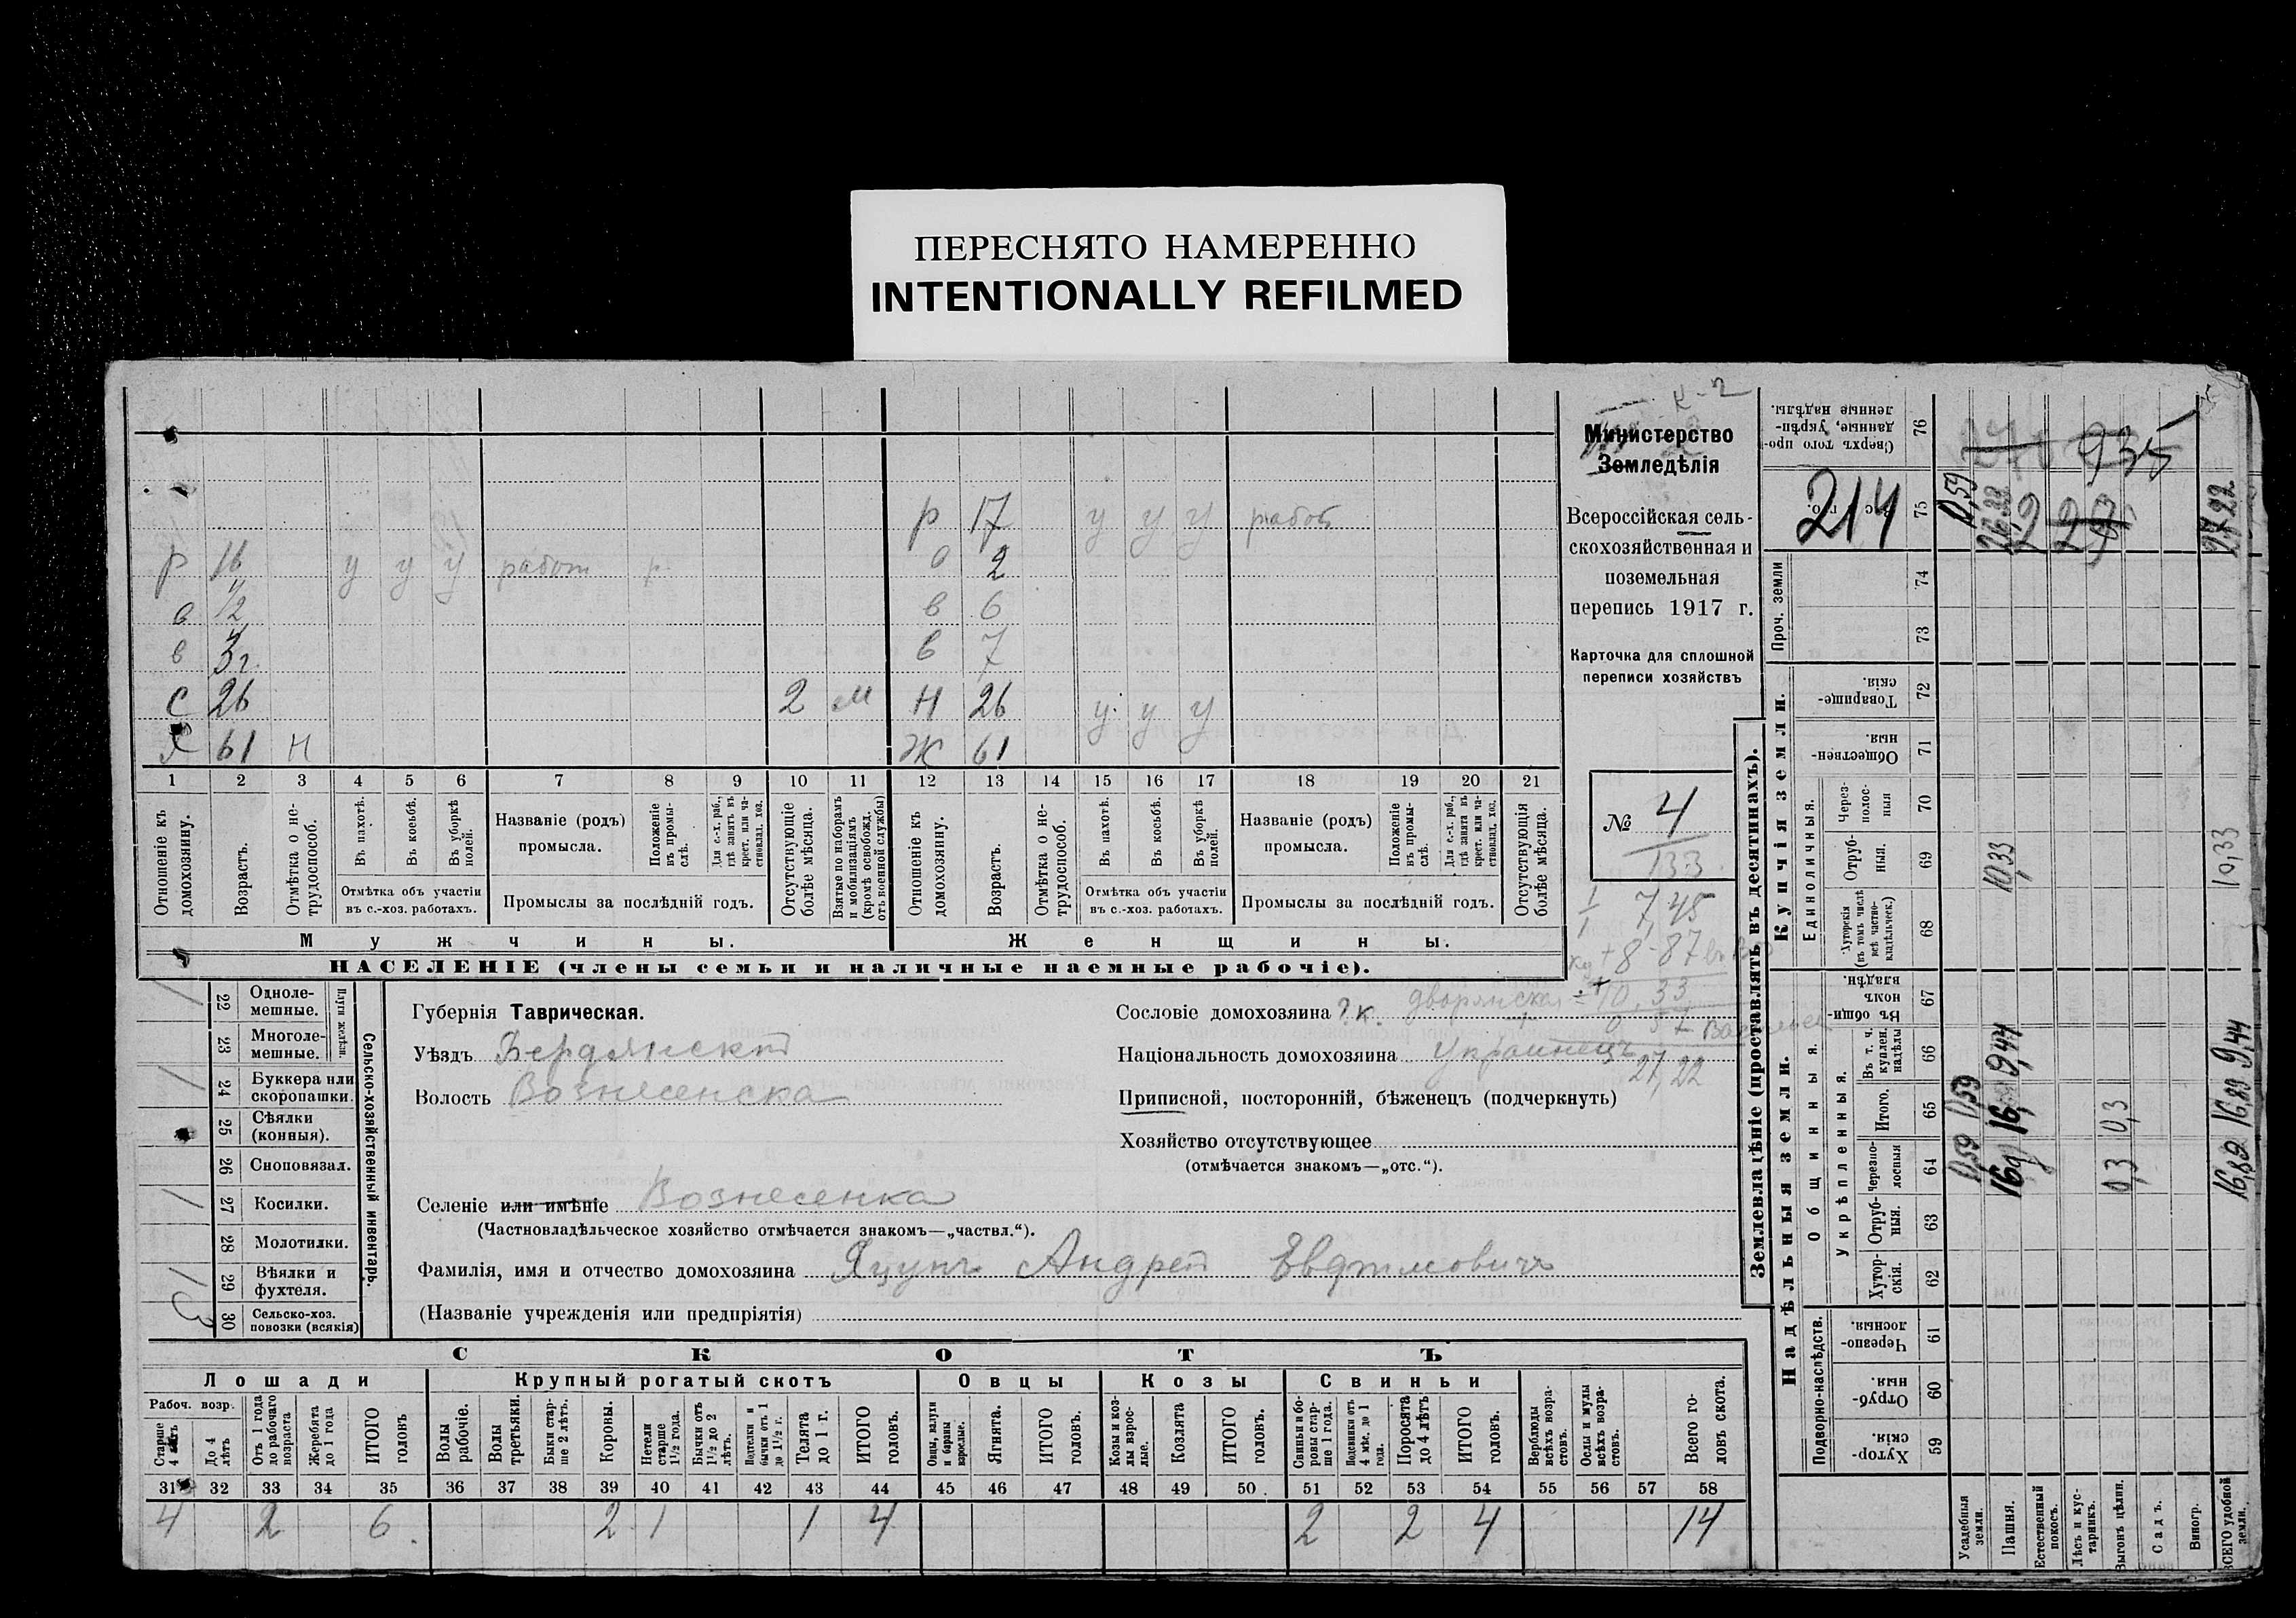 ПЕРЕСНЯТО НАМЕРЕННО
INTENTIONALLY REFILMED
Министерство
Земледѣлія
Всероссійская сель-
скохозяйственная и
поземельная
перепись 1917 г.
Карточка для сплошной
переписи хозяйствъ
№ 4
133
р 17 у у у работ
р 16 у у у работ р
2
в 12 в 6
в 3 г. в 7
С 26 2 м Н 26 у у у
Х 61 Н Ж 61
1 2 3 4 5 6 7 8 9 10 11 12 13 14 15 16 17 18 19 20 21
Отношеніе къ домохозяину.
Возрастъ.
Отмѣтка о не-трудоспособ.
Въ пахотѣ.
Въ косьбѣ.
Въ уборкѣ полей.
Отмѣтка объ участіи въ с.-хоз. работахъ.
Названіе (родъ) промысла.
Положеніе въ промы-слѣ.
Для с.-х. раб., гдѣ занятъ въ крест. или ча-стновлад. хоз.
Промыслы за послѣдній годъ.
Отсутствующіе болѣе мѣсяца.
Взятые по наборамъ и мобилизаціямъ (кромѣ освобожд. отъ военной службы)
Отношеніе къ домохозяину.
Возрастъ.
Отмѣтка о не-трудоспособ.
Въ пахотѣ.
Въ косьбѣ.
Въ уборкѣ полей.
Отмѣтка объ участіи въ с.-хоз. работахъ.
Названіе (родъ) промысла.
Положеніе въ промы-слѣ.
Для с.-х. раб., гдѣ занята въ крест. или ча-стновлад. хоз.
Промыслы за послѣдній годъ.
Отсутствующія болѣе мѣсяца.
Мужчины. Женщины.
НАСЕЛЕНІЕ (члены семьи и наличные наемные рабочіе).
7,45
+ 8-87
10,33
27,22
Сельско-хозяйственный инвентарь.
Плуги желѣзн.
22 Одноле-мешные.
23 Многоле-мешные.
24 Буккера или скоропашки.
25 Сѣялки (конныя).
26 Сноповязал.
27 Косилки.
28 Молотилки.
29 Вѣялки и фухтеля.
30 Сельско-хоз. повозки (всякія)
Губернія Таврическая.
Уѣздъ Бердянскій
Волость Вознесенска
Селеніе или имѣніе Вознесенка
(Частновладѣльческое хозяйство отмѣчается знакомъ—„частвл.“).
Фамилія, имя и отчество домохозяина Яцунъ Андрей Евфимовичъ
(Названіе учрежденія или предпріятія)
Сословіе домохозяина ? к.
Національность домохозяина Украинецъ
Приписной, посторонній, бѣженецъ (подчеркнуть)
Хозяйство отсутствующее
(отмѣчается знакомъ—„отс.“).
СКОТЪ
Лошади Крупный рогатый скотъ Овцы Козы Свиньи
Рабоч. возр.
Старше 4 лѣтъ
До 4 лѣтъ
Отъ 1 года до рабочаго возраста
Жеребята до 1 года
ИТОГО головъ
Волы рабочіе.
Волы третьяки.
Быки стар-ше 2 лѣтъ.
Коровы.
Нетели старше 1½ года.
Бычки отъ 1½ до 2 лѣтъ.
Подтелки и бычки отъ 1 до 1½ г.
Телята до 1 г.
ИТОГО головъ.
Овцы, валухи и бараны взрослые.
Ягнята.
ИТОГО головъ.
Козы и коз-лы взрос-лые.
Козлята
ИТОГО головъ.
Свиньи и бо-ровы стар-ше 1 года.
Подсвинки отъ 4 мѣс. до 1 года.
Поросята до 4 лѣтъ
ИТОГО головъ.
Верблюды всѣхъ возра-стовъ.
Ослы и мулы всѣхъ возра-стовъ.
Всего го-ловъ скота.
31 32 33 34 35 36 37 38 39 40 41 42 43 44 45 46 47 48 49 50 51 52 53 54 55 56 57 58
4 2 6 2 1 1 4 2 2 4 14
Землевладѣніе (проставлять въ десятинахъ).
Сверхъ того про-данные, укрѣп-ленные надѣлы. 76
214 75
Проч. земли 74 73
Купчія земли.
Товарище-скія. 72
Обществен-ныя. 71
Единоличныя.
Через-полос-ныя 70
Отруб-ныя. 69
Хуторскія (въ томъ числѣ всѣ частно-владѣльческ.) 68
Надѣльныя земли.
Общинныя.
Въ общин-номъ владѣн. 67
Укрѣпленныя.
Въ т. ч. куплен. надѣлы 66
Итого. 65
Черезпо-лосныя 64
Отруб-ныя. 63
Хутор-скія. 62
Подворно-наслѣдств.
Черезпо-лосныя. 61
Отруб-ныя. 60
Хутор-скія. 59
Усадебныя земли.
Пашня.
Естественный покосъ.
Лѣсъ и кус-тарникъ.
Выгонъ цѣлин.
Садъ.
Виногр.
ВСЕГО удобной земли.
935
0,59
27,22
10,33 10,33
9,44 9,44
0,59 0,3 16,89
0,59 0,3 16,89